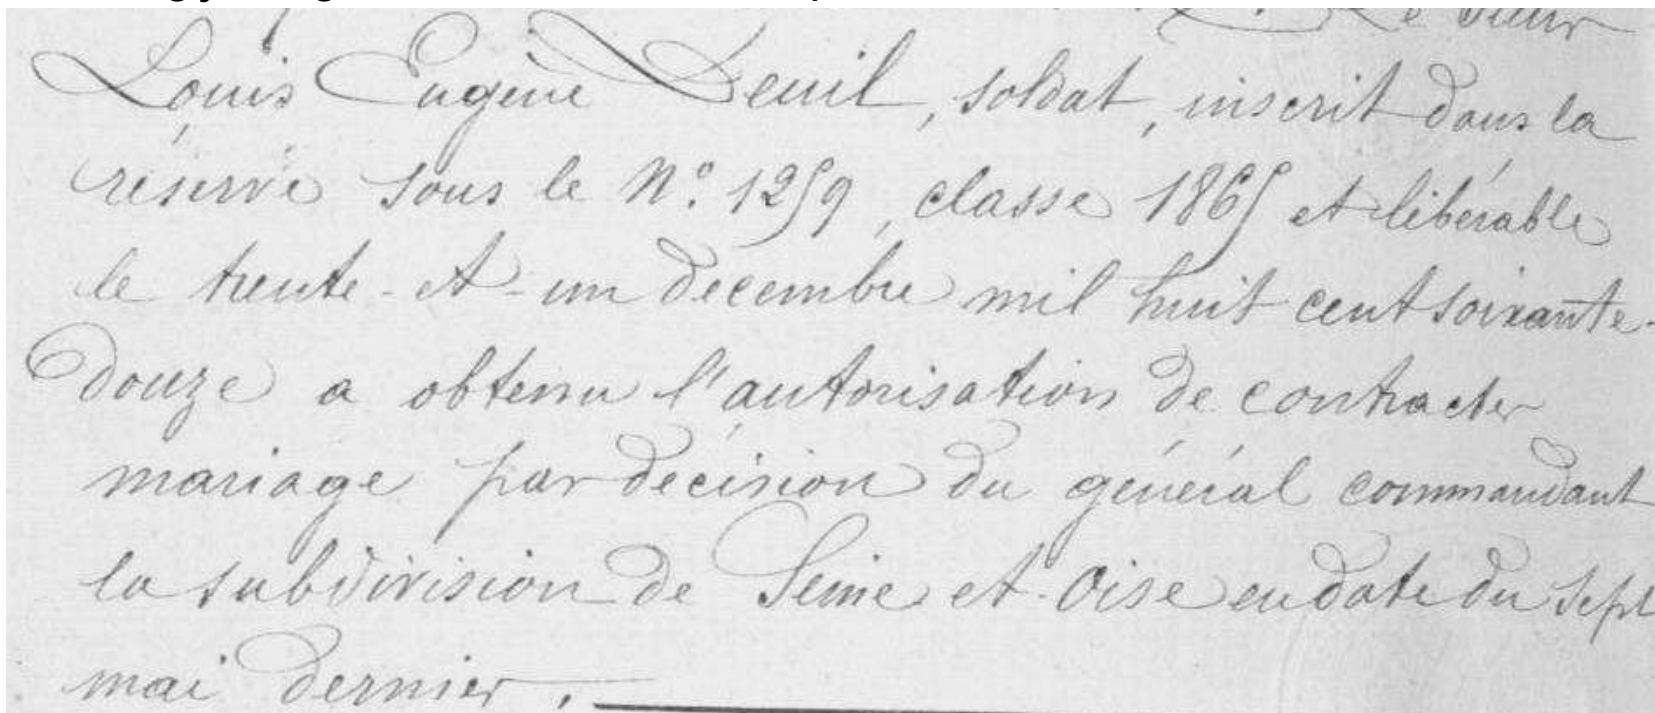 Le Sieur
Louis Eugène Deuil, soldat, inscrit dans la
réserve sous le N.° 1259, classe 1865 et libérable
le trente-et-un décembre mil huit cent soixante-
douze a obtenu l'autorisation de contracter
mariage par décision du général commandant
la subdivision de Seine et-Oise en date du sept
mai dernier.